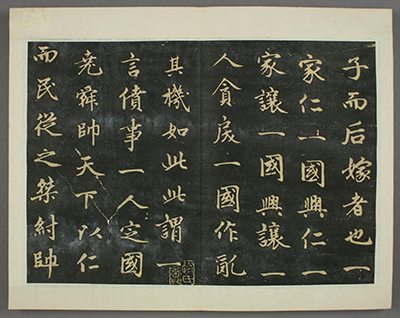 子而后嫁者也一
家仁一國興仁一
家讓一國興讓一
人貪戾一國作亂
其機如此此謂一
言僨事一人定國
堯舜帥天下以仁
而民從之桀紂帥